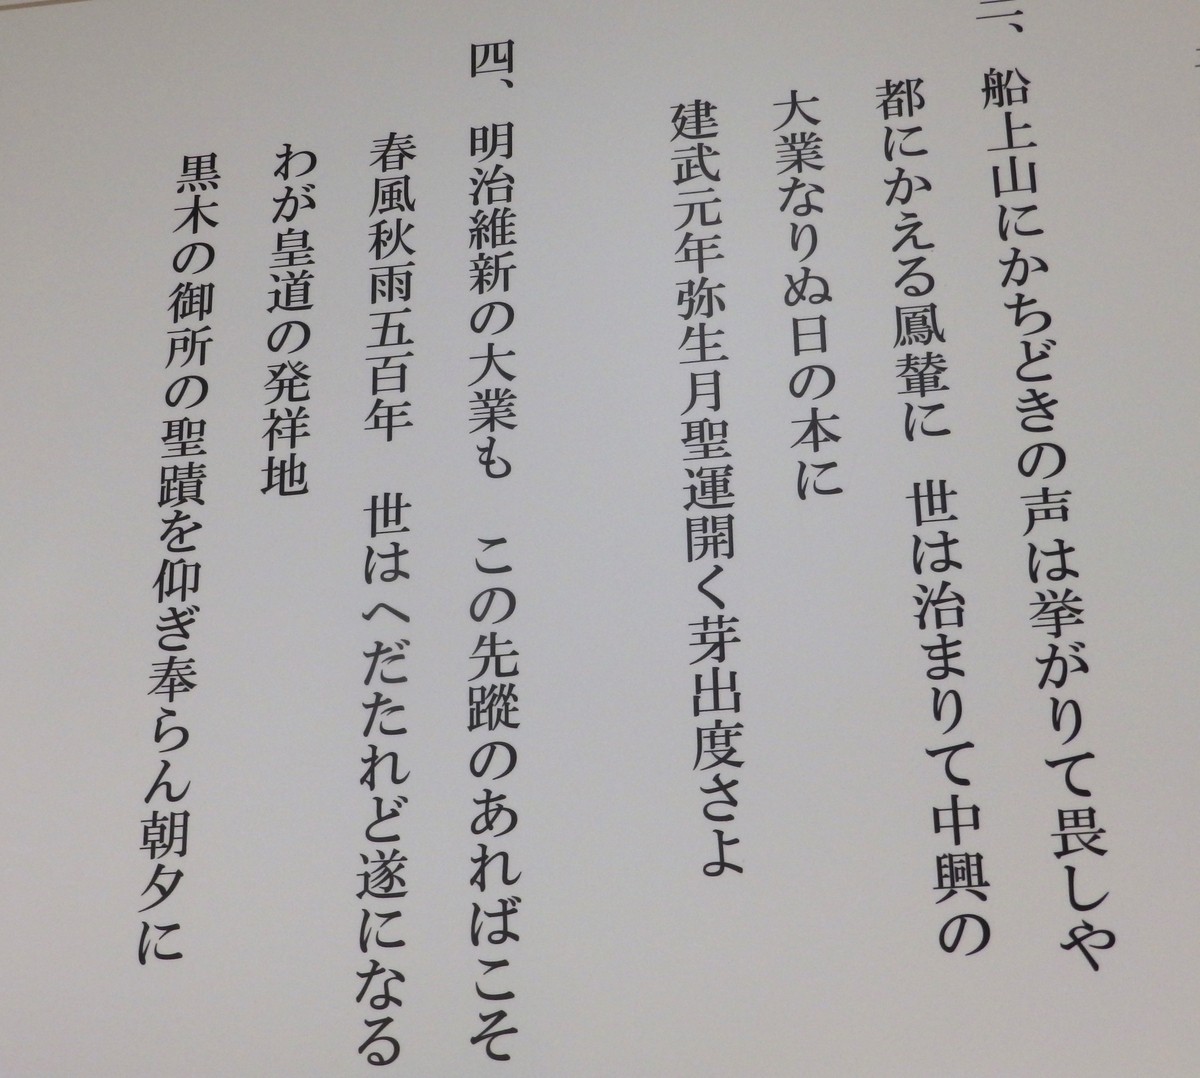 三、船上山にかちどきの声は挙がりて畏しや
都にかえる鳳輦に　世は治まりて中興の
大業なりぬ日の本に
建武元年弥生月聖運開く芽出度さよ
四、明治維新の大業も　この先蹤のあればこそ
春風秋雨五百年　世はへだたれど遂になる
わが皇道の発祥地
黒木の御所の聖蹟を仰ぎ奉らん朝夕に